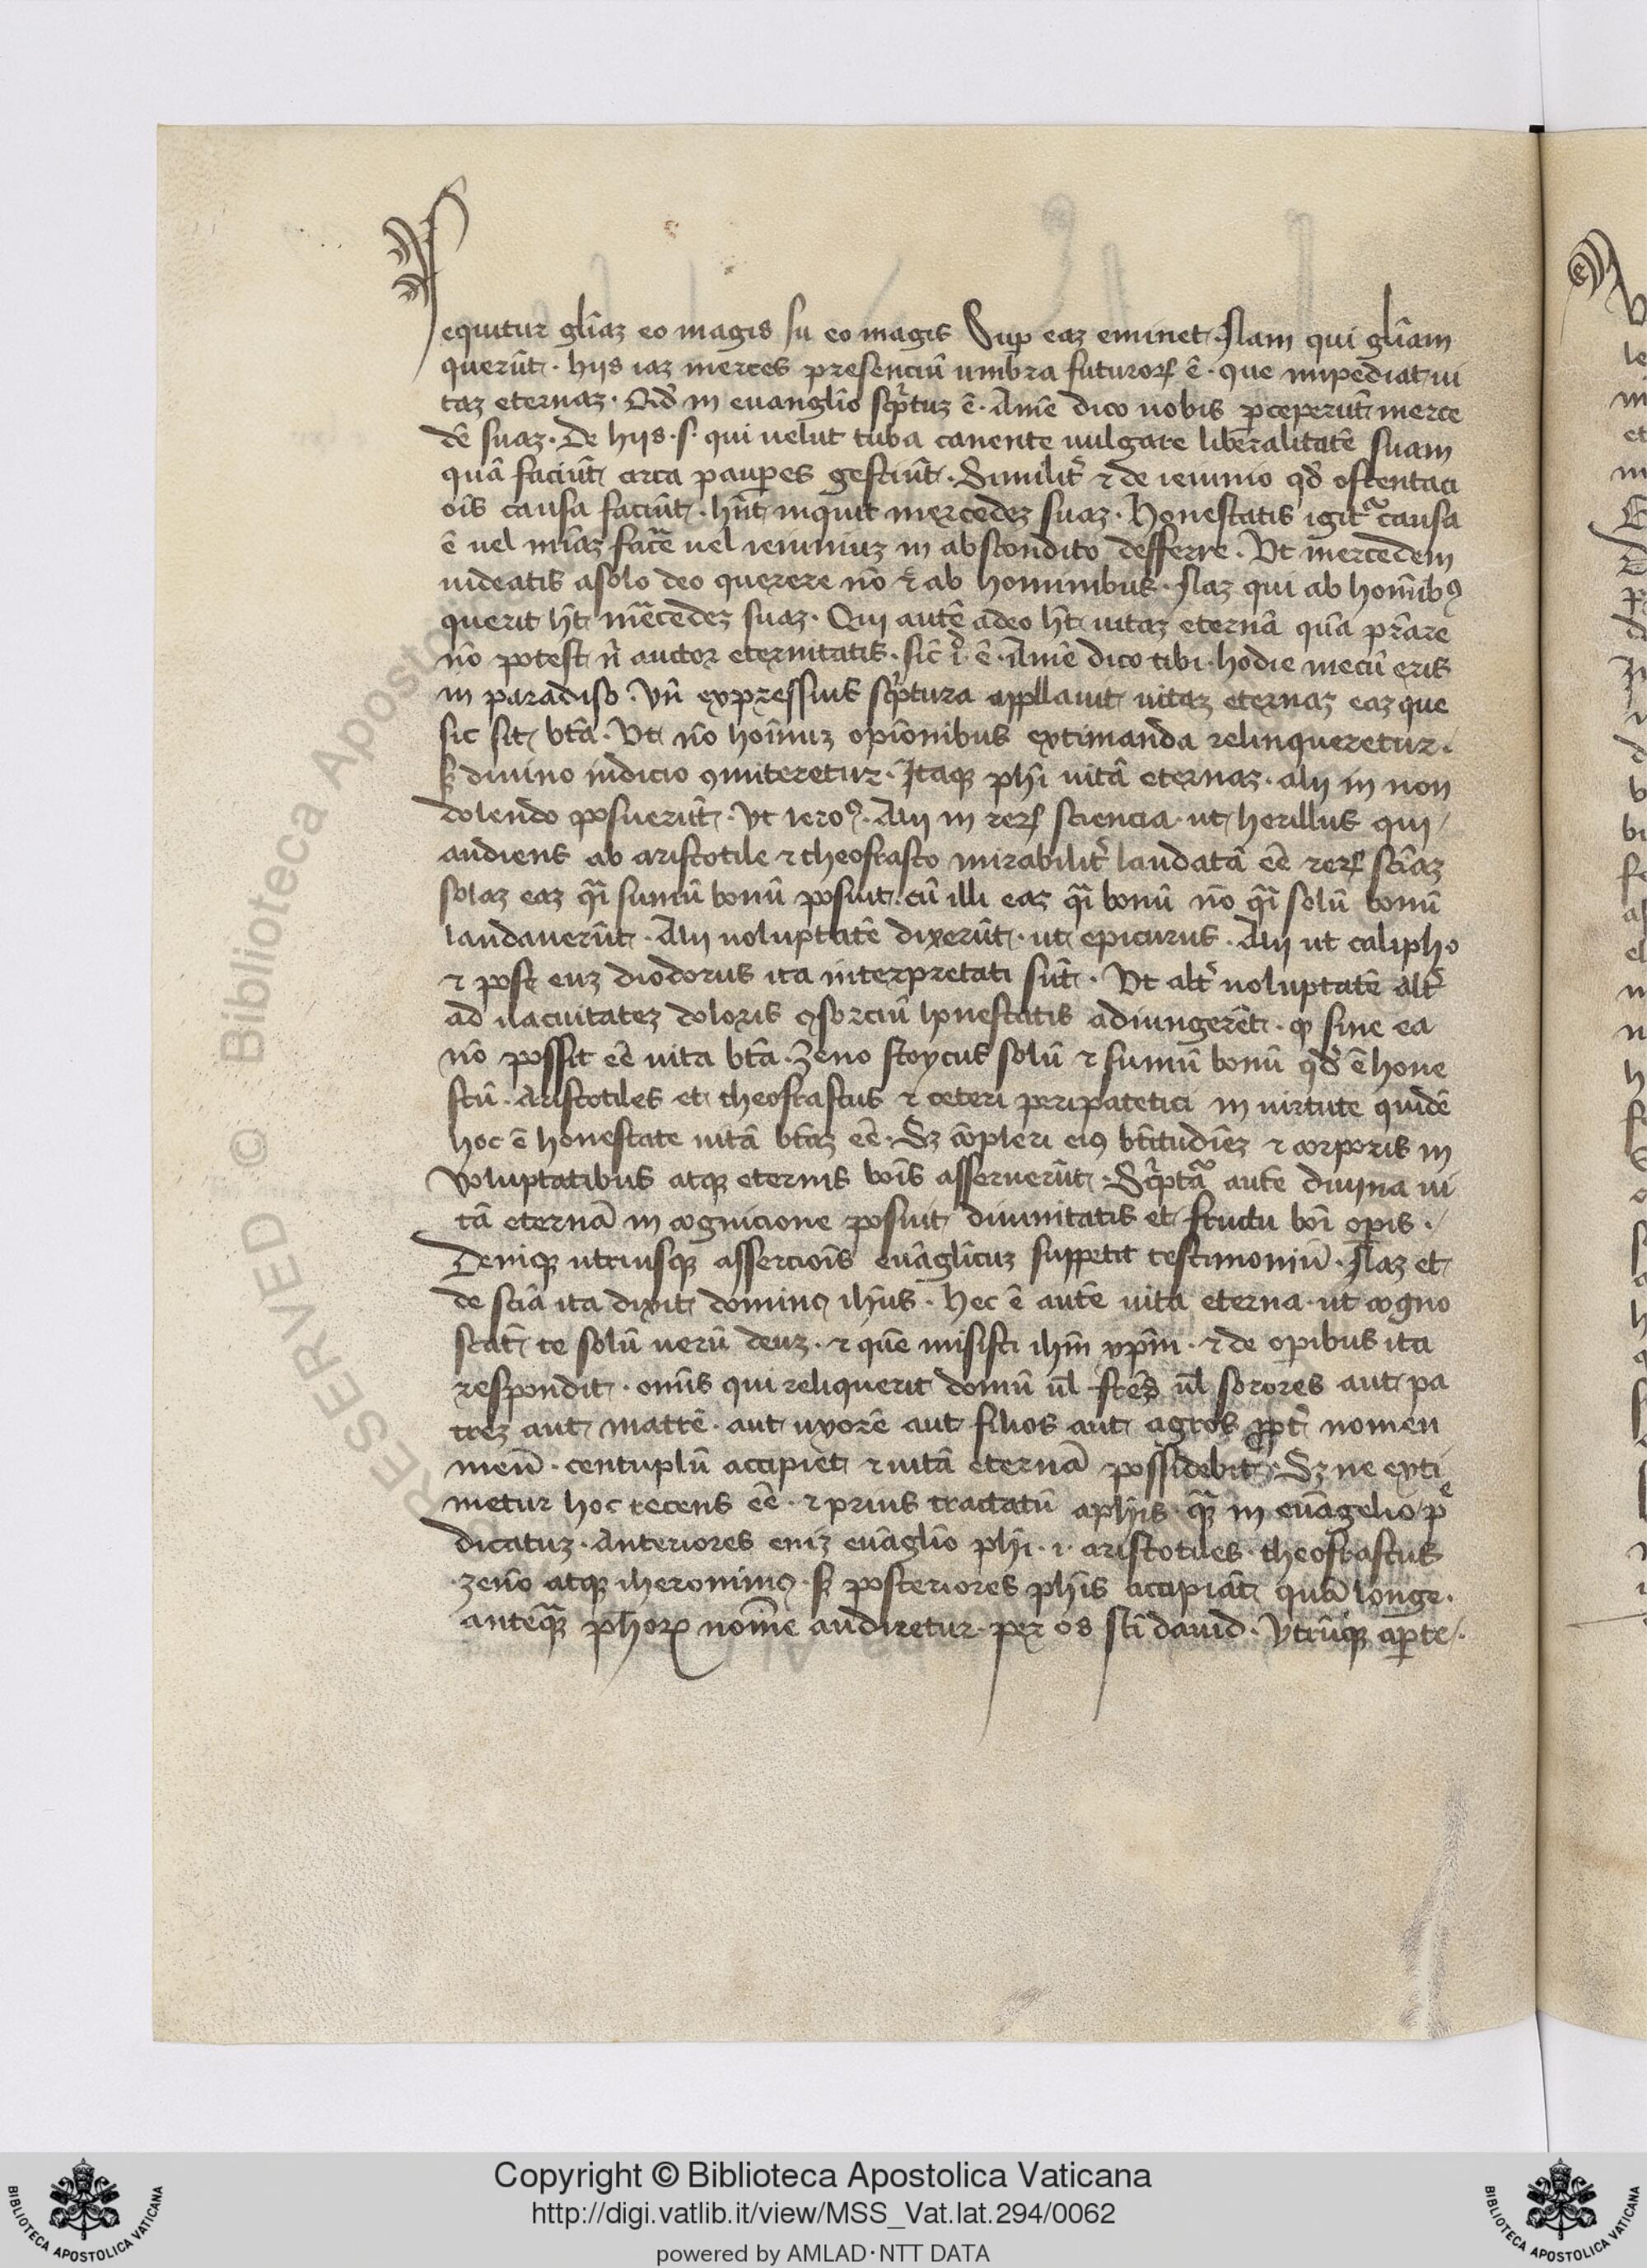 equitur gl̃iaꝫ eo magis su eo magis Sup̱ eaꝫ eminet. Nam qui gl̃iam
querũt. hijs iaꝫ merces presenciũ umbra futuroꝝ ẽ. que impediat ui
taꝫ eternaꝫ. Qd̓ in euanglĩo sc̓ptuꝫ ẽ. Amẽ dico uobis ꝑceperũt merce
dẽ suaꝫ. De hijs .s. qui uelut tuba canente uulgare liberalitatẽ suam
quã faciũt circa pauꝑes gestiũt. Similit̓ ⁊ de ieiunio qd̓ ostentaci
oĩs causa faciũt. hñt inquit mercedeꝫ suaꝫ. Honestatis igit᷑ causa
ẽ uel mĩaꝫ facẽ uel ieiuniuꝫ in abscondito defferre. Ut mercedem
uideatis asolo deo querere nõ ⁊ ab hominibus. Naꝫ qui ab homĩbꝯ
querit ht̃ mẽcedeꝫ suaꝫ. Qui autẽ adeo ht̃ uitaꝫ eternã quã p̃rare
nõ potest n̓ auctor eternitatis. sic̃ i᷑ ẽ. Amẽ dico tibi. hodie mecũ eris
in paradiso. Vñ expressius sc̓ptura appllauit uitaꝫ eternaꝫ eaꝫ que
sic sit btã. Ut nõ homĩuꝫ opiõnibus extimanda relinqueretur.
sꝫ diuino iudicio ꝯmiteretur. Itaqꝫ phĩ uitã eternaꝫ. alij in non
dolendo posuerũt. ut ieroꝯ. Alij in reꝝ sciencia. ut herillus qui
audiens ab aristotile ⁊ theofrasto mirabilit̓ laudatã eẽ reꝝ sciãꝫ
solaꝫ eaꝫ qãi sumũ bonũ posuit. cũ illi eaꝫ qãi bonũ nõ qãi solũ bonũ
laudauerũt. Alij uoluptatẽ dixerũt. ut epicurus. Alij ut calipho
⁊ post euꝫ diodorus ita interpretati sũt. Ut alt̓ uoluptatẽ alt̓
ad uacuitateꝫ doloris ꝯsorciũ honestatis adiungerẽt. ꝙ sine ea
nõ possit eẽ uita btã. Zeno stoycus solũ ⁊ sumũ bonũ qd̓ ẽ hone
stũ. Aristotiles et theofrastus ⁊ ceteri peripatetici in uirtute quidẽ
hoc ẽ honestate uitã btãꝫ eẽ. Sꝫ cõpleri eiꝯ btĩtudiẽꝫ ⁊ corporis in
uoluptatibus atqꝫ eternis boĩs asseruerũt. Sc̓ptᷓa autẽ diuina ui
tã eternã in cognicione posuit diuinitatis et fructu boĩ oꝑis.
Deniqꝫ utriusqꝫ assercioĩs euãglĩcuꝫ suppetit testimoniũ. Naꝫ et
de sciã ita dixit dominꝯ ihũs. Hec ẽ autẽ uita eterna. ut cogno
scãt te solũ uerũ deuꝫ. ⁊ quẽ misisti ihm̃ xpm̃. ⁊ de oꝑibus ita
respondit. omĩs qui reliquerit domũ ul̃ frẽs ul̃ sorores aut pa
treꝫ aut matrẽ. aut uxorẽ aut filios aut agros ꝓpt̓ nomen
meũ. centuplũ accipiet ⁊ uitã eternã possidebit. Sꝫ ne exti
metur hoc recens eẽ. ⁊ prius tractatũ aphĩs. qᷓꝫ in euãgelio pͤ
dicatuꝫ. Anteriores eniꝫ euãglĩo phĩ .i. aristotiles. theofrastus
zeno atqꝫ iheronimꝯ. sꝫ posteriores phĩs accipiãt quã longe.
anteqᷓꝫ phõꝝ nomẽ audiretur. per os sctĩ dauid. utrũqꝫ aꝑte.
Copyright © Biblioteca Apostolica Vaticana
http://digi.vatlib.it/view/MSS_Vat.lat.294/0062
powered by AMLAD·NTT DATA